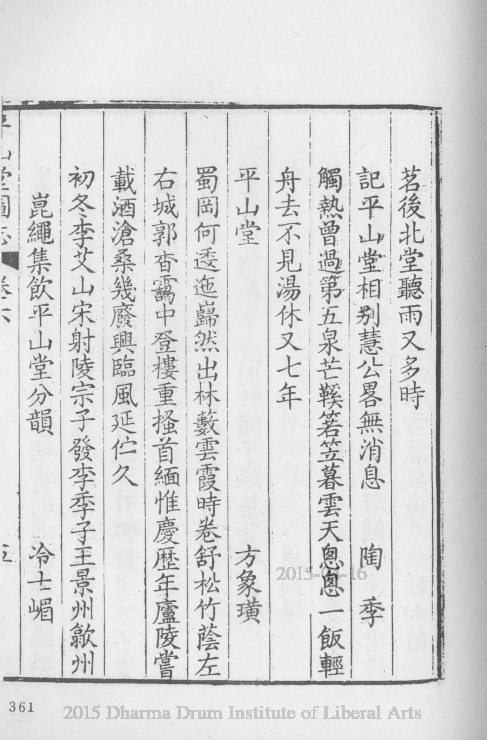 茗後北堂聽雨又多時
記平山堂相别慧公畧無消息　陶季
觸熱曾過第五泉芒鞵箬笠暮雲天悤悤一飯輕
舟去不見湯休又七年
平山堂　方象璜
蜀岡何逶迤巋然出林藪雲霞時卷舒松竹蔭左
右城郭杳靄中登樓重搔首緬惟慶歴年廬陵嘗
載酒滄桑幾廢興臨風延伫久
初冬李艾山宋射陵宗子發李季子王景州歙州
崑繩集飲平山堂分韻　冷士嵋
平山堂圖志　卷六　五
361
2015-01-16
2015 Dharma Drum Institute of Liberal Arts